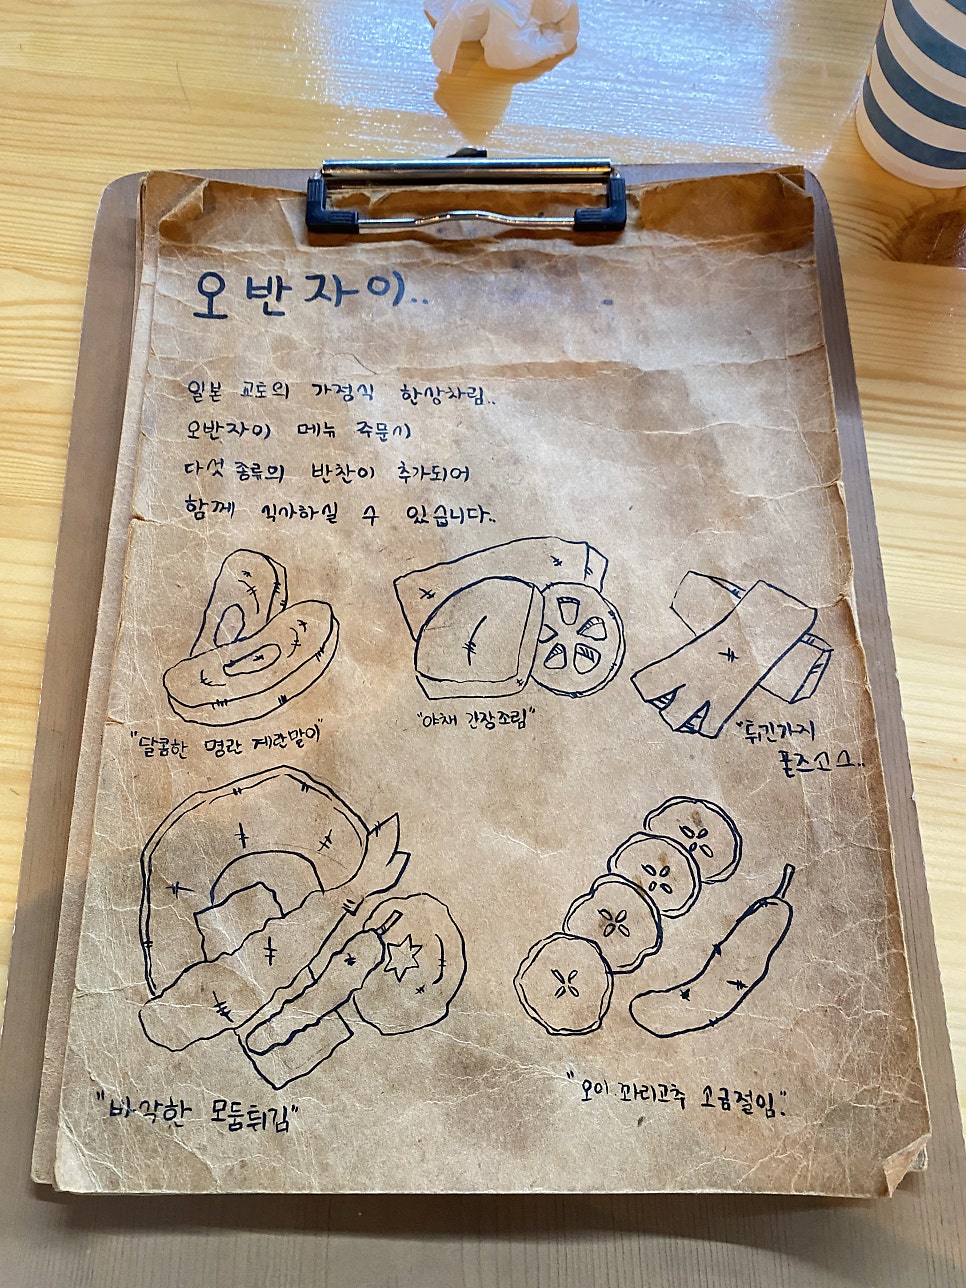 오반자이..
일본 교토의 가정식 한상차림..
오반자이 메뉴 주문시
다섯 종류의 반찬이 추가되어
함께 식사하실 수 있습니다..
"달콤한 명란 계란말이"
"야채 간장조림"
"튀긴가지
폰즈소스..
"바삭한 모둠튀김"
"오이 꽈리고추 소금절임".